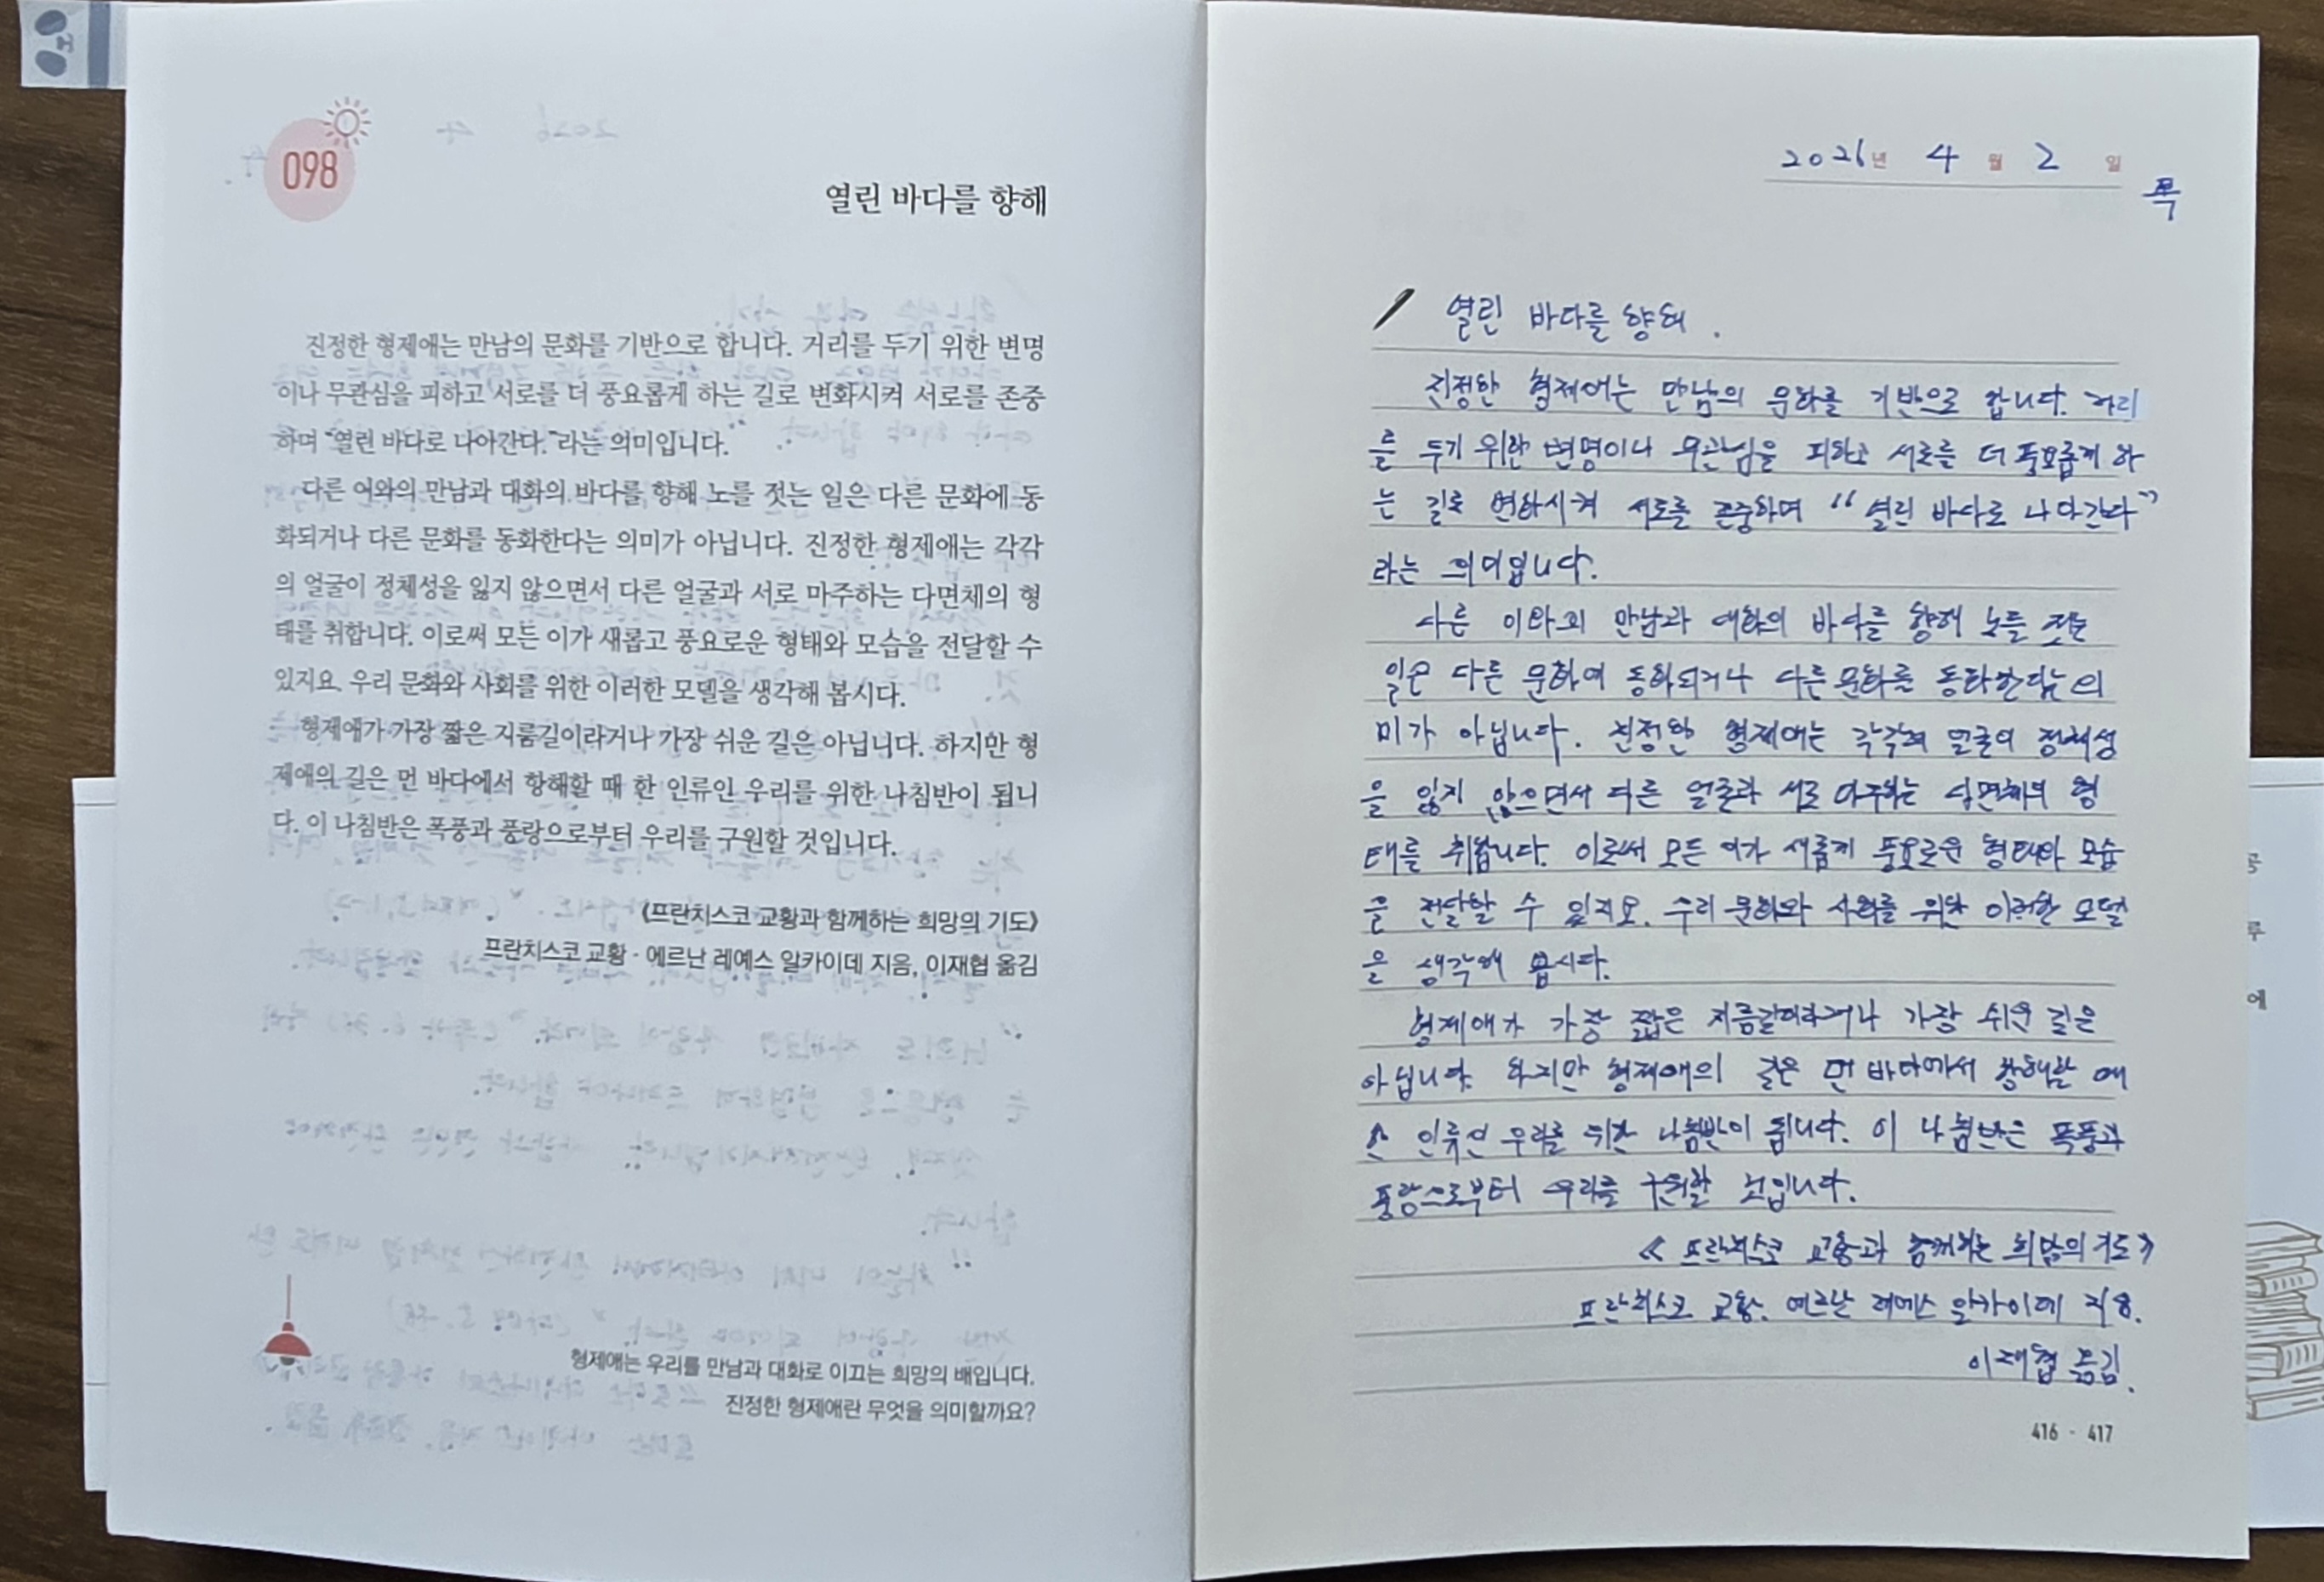 098
열린 바다를 향해
진정한 형제애는 만남의 문화를 기반으로 합니다. 거리를 두기 위한 변명
이나 무관심을 피하고 서로를 더 풍요롭게 하는 길로 변화시켜 서로를 존중
하며 “열린 바다로 나아간다.”라는 의미입니다.
다른 이와의 만남과 대화의 바다를 향해 노를 젓는 일은 다른 문화에 동
화되거나 다른 문화를 동화한다는 의미가 아닙니다. 진정한 형제애는 각각
의 얼굴이 정체성을 잃지 않으면서 다른 얼굴과 서로 마주하는 다면체의 형
태를 취합니다. 이로써 모든 이가 새롭고 풍요로운 형태와 모습을 전달할 수
있지요. 우리 문화와 사회를 위한 이러한 모델을 생각해 봅시다.
형제애가 가장 짧은 지름길이라거나 가장 쉬운 길은 아닙니다. 하지만 형
제애의 길은 먼 바다에서 항해할 때 한 인류인 우리를 위한 나침반이 됩니
다. 이 나침반은 폭풍과 풍랑으로부터 우리를 구원할 것입니다.
《프란치스코 교황과 함께하는 희망의 기도》
프란치스코 교황 · 에르난 레예스 알카이데 지음, 이재협 옮김
형제애는 우리를 만남과 대화로 이끄는 희망의 배입니다.
진정한 형제애란 무엇을 의미할까요?
2026년 4월 2일
목
열린 바다를 향해.
진정한 형제애는 만남의 문화를 기반으로 합니다. 거리
를 두기 위한 변명이나 무관심을 피하고 서로를 더 풍요롭게 하
는 길로 변화시켜 서로를 존중하며 “열린 바다로 나아간다”
라는 의미입니다.
다른 이와의 만남과 대화의 바다를 향해 노를 젓는
일은 다른 문화에 동화되거나 다른 문화를 동화한다는 의
미가 아닙니다. 진정한 형제애는 각각의 얼굴이 정체성
을 잃지 않으면서 다른 얼굴과 서로 마주하는 형
태를 취합니다. 이로써 모든 이가 새롭게 풍요로운 형태와 모습
을 전달할 수 있지요. 우리 문화와 사회를 위한 이러한 모델
을 생각해 봅시다.
형제애가 가장 짧은 지름길이라거나 가장 쉬운 길은
아닙니다. 하지만 형제애의 길은 먼 바다에서 항해할 때
한 인류인 우리를 위한 나침반이 됩니다. 이 나침반은 폭풍과
풍랑으로부터 우리를 구원할 것입니다.
《프란치스코 교황과 함께하는 희망의 기도》
프란치스코 교황. 에르난 레예스 알카이데 지음.
이재협 옮김.
416 - 417